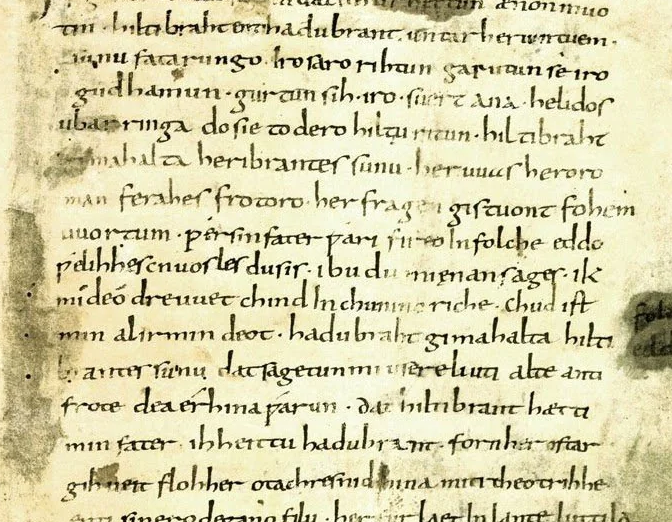 hettun ænon muo
tin · hiltibraht enti hadubrant · untar heriun tuem ·
sunu fatarungo · iro saro rihtun garutun se iro
gudhamun · gurtun sih · iro · suert ana · helidos
ubar ringa do sie to dero hiltu ritun · hiltibraht
gimahalta heribrantes sunu · her uuas heroro
man ferahes frotoro · her fragen gistuont fohem
uuortum · ƿer sin fater ƿari fireo In folche eddo
ƿelihhes cnuosles du sis · ibu du mi enan sages · ik
mi de o dre uuet chind In chunincriche · chud ist
min al irmindeot · hadubraht gimahalta hilti
brantes sunu dat sagetun mi usere liuti alte anti
frote dea erhina ƿarun · dat hiltibrant hætti
min fater · ih heittu hadubrant · forn her ostar
gihueit floh her otachres nid hina miti theotrihhe
enti sinero degano filu · her furlaet In lante luttila